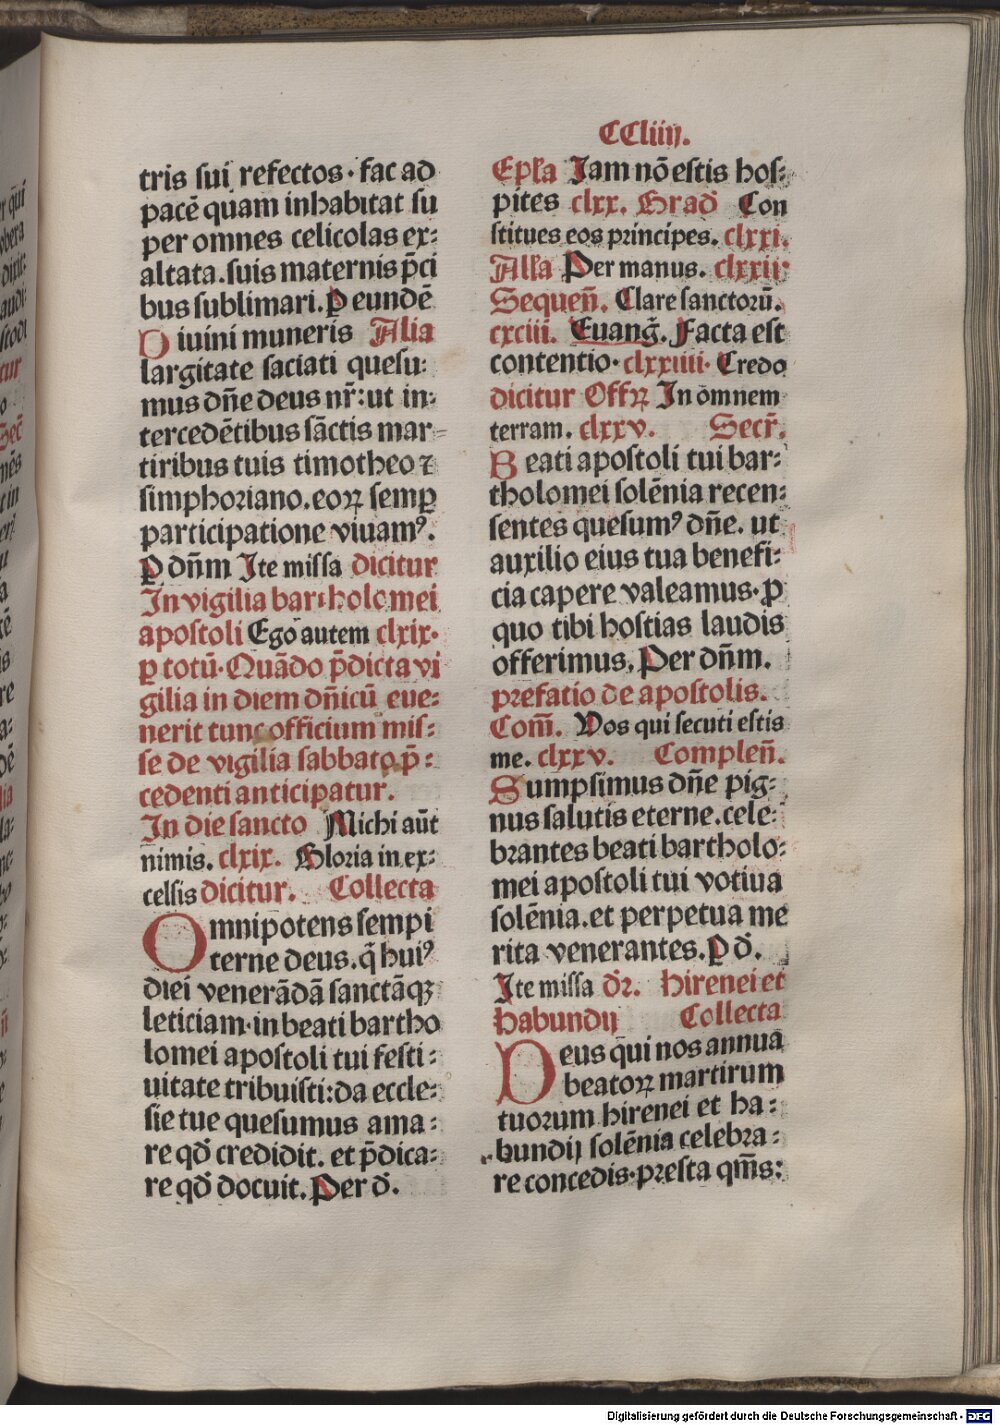 CCliiij.
tris sui refectos· fac ad
pacē quam inhabitat su
per omnes celicolas ex⸗
altata. suis maternis p̄ci
bus sublimari. ꝑ eundē
Diuini muneris Alia
largitate saciati quesu⸗
mus dn̄e deus nr̄: ut in⸗
tercedētibus sāctis mar⸗
tiribus tuis timotheo ⁊
simphoriano. eoꝝ semꝑ
participatione viuamꝰ.
ꝑ dn̄m Ite missa dicitur
In vigilia bartholomei
apostoli Ego autem clxix·
ꝑ totū· Quādo p̄dicta vi
gilia in diem dn̄icū eue⸗
nerit tunc officium mis⸗
se de vigilia sabbato p̄⸗
cedenti anticipatur.
In die sancto Michi aūt
nimis. clxix. Gloria in ex⸗
celsis dicitur. Collecta
Omnipotens sempi
terne deus. q̄ huiꝰ
diei venerādā sanctāqꝫ
leticiam· in beati bartho
lomei apostoli tui festi⸗
uitate tribuisti: da eccle⸗
sie tue quesumus ama⸗
re qd̓ credidit. et p̄dica⸗
re qd̓ docuit. Per d̓.
Ep̄l̄a Iam nō estis hos⸗
pites clxx. Grad̓ Con
stitues eos principes. clxxi.
All̄a Per manus. clxxij·
Sequen̄. Clare sanctorū.
cxciii. Euanḡ. Facta est
contentio· clxxiiii· Credo
dicitur Offꝝ In omnem
terram. clxxv. Secr̄.
Beati apostoli tui bar⸗
tholomei solēnia recen⸗
sentes quesumꝰ dn̄e. ut
auxilio eius tua benefi⸗
cia capere valeamus· ꝓ
quo tibi hostias laudis
offerimus. Per dn̄m.
prefatio de apostolis.
Com̄. Vos qui secuti estis
me. clxxv. Complen̄.
Sumpsimus dn̄e pig⸗
nus salutis eterne. cele⸗
brantes beati bartholo⸗
mei apostoli tui votiua
solēnia. et perpetua me
rita venerantes. ꝑ d̓.
Ite missa dr̄. Hirenei et
habundij Collecta
Deus qui nos annua
beatoꝝ martirum
tuorum hirenei et ha⸗
bundij solēnia celebra⸗
re concedis· presta qm̄s:
Digitalisierung gefördert durch die Deutsche Forschungsgemeinschaft - DFG